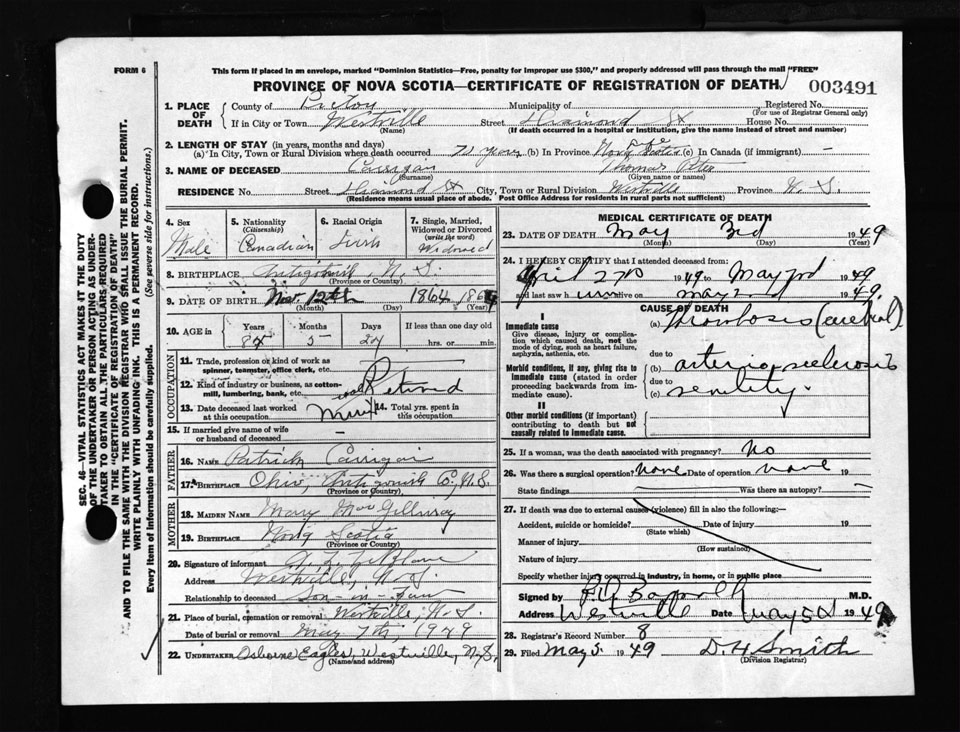 FORM 6
This form if placed in an envelope, marked "Dominion Statistics—Free, penalty for improper use $300," and properly addressed will pass through the mail "FREE"
PROVINCE OF NOVA SCOTIA—CERTIFICATE OF REGISTRATION OF DEATH
003491
1. PLACE OF DEATH
County of Pictou Municipality of Registered No.
(For use of Registrar General only)
If in City or Town Westville Street Diamond St House No.
(Name) (If death occurred in a hospital or institution, give the name instead of street and number)
2. LENGTH OF STAY (in years, months and days)
(a) In City, Town or Rural Division where death occurred 72 years (b) In Province Nova Scotia (c) In Canada (if immigrant) —
3. NAME OF DECEASED Carrigan Thomas Peter
(Surname) (Given name or names)
RESIDENCE No. Street Diamond St City, Town or Rural Division Westville Province N. S.
(Residence means usual place of abode. Post Office Address for residents in rural parts not sufficient)
4. Sex Male
5. Nationality (Citizenship) Canadian
6. Racial Origin Irish
7. Single, Married, Widowed or Divorced (write the word) Widowed
8. BIRTHPLACE Antigonish, N. S.
(Province or Country)
9. DATE OF BIRTH 12th 1864
(Month) (Day) (Year)
10. AGE in Years Months Days If less than one day old
5 hrs. or min.
OCCUPATION
11. Trade, profession or kind of work as spinner, teamster, office clerk, etc.
12. Kind of industry or business, as cotton-mill, lumbering, bank, etc. Retired
13. Date deceased last worked at this occupation
14. Total yrs. spent in this occupation
15. If married give name of wife or husband of deceased —
FATHER
16. NAME Patrick Carrigan
17. BIRTHPLACE Ohio, Antigonish Co., N.S.
(Province or Country)
MOTHER
18. MAIDEN NAME Mary MacGillivray
19. BIRTHPLACE Nova Scotia
(Province or Country)
20. Signature of informant
Address Westville, N. S.
Relationship to deceased Son-in-law
21. Place of burial, cremation or removal Westville, N. S.
Date of burial or removal May 7th, 1949
22. UNDERTAKER Osborne Eagles, Westville, N.S.
(Name and address)
MEDICAL CERTIFICATE OF DEATH
23. DATE OF DEATH May 3rd 1949
(Month) (Day) (Year)
24. I HEREBY CERTIFY that I attended deceased from:
April 22nd 1949 to May 3rd 1949
and last saw h alive on May 2 1949.
CAUSE OF DEATH
I
Immediate cause
Give disease, injury or complication which caused death, not the mode of dying, such as heart failure, asphyxia, asthenia, etc.
(a) Thrombosis (cerebral)
due to
Morbid conditions, if any, giving rise to immediate cause (stated in order proceeding backwards from immediate cause).
(b) arterio sclerosis
due to
(c) senility
II
Other morbid conditions (if important) contributing to death but not causally related to immediate cause.
25. If a woman, was the death associated with pregnancy? No
26. Was there a surgical operation? none Date of operation none 19
State findings Was there an autopsy? —
27. If death was due to external causes (violence) fill in also the following:—
Accident, suicide or homicide? Date of injury 19
(State which)
Manner of injury
(How sustained)
Nature of injury
Specify whether injury occurred in industry, in home, or in public place
Signed by M.D.
Address Westville Date May 5 1949
28. Registrar's Record Number 8
29. Filed May 5 1949 D. H. Smith
(Division Registrar)
SEC. 46—VITAL STATISTICS ACT MAKES IT THE DUTY
OF THE UNDERTAKER OR PERSON ACTING AS UNDER-
TAKER TO OBTAIN ALL THE PARTICULARS REQUIRED
IN THE "CERTIFICATE OF REGISTRATION OF DEATH"
AND TO FILE THE SAME WITH THE DIVISION REGISTRAR WHO SHALL ISSUE THE BURIAL PERMIT.
WRITE PLAINLY WITH UNFADING INK. THIS IS A PERMANENT RECORD.
Every item of information should be carefully supplied. (See reverse side for instructions.)